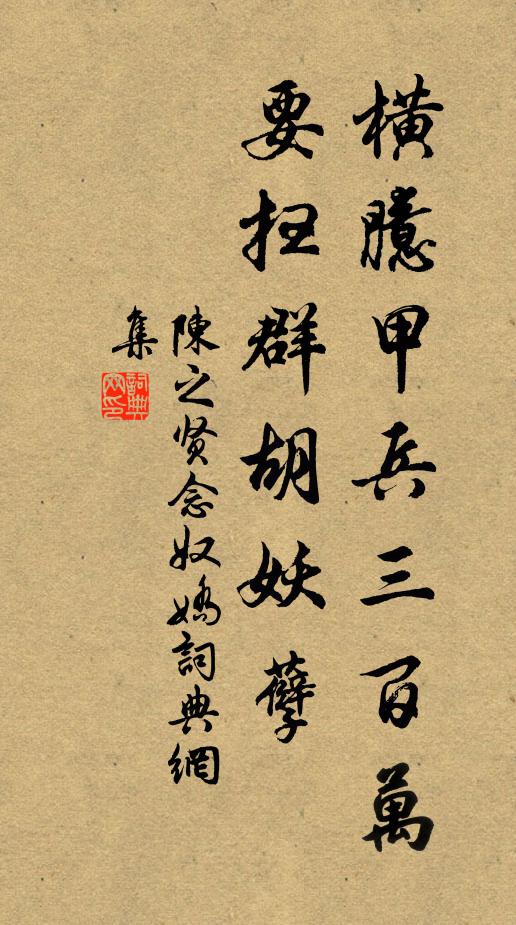 橫臆甲兵三百萬
要扫群胡妖孽
陳之贤念奴嬌詞典網
集
詞典網印